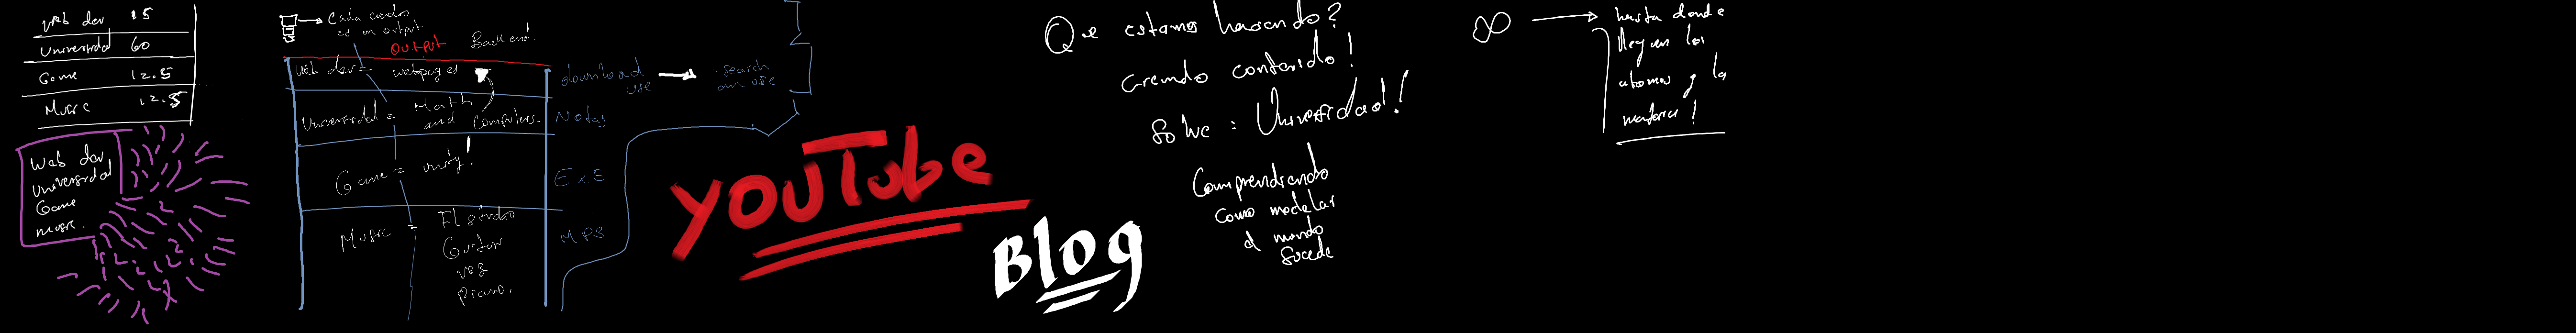 web dev 15
Universidad 60
Game 12.5
Music 12.5
Web dev,
universidad
Game
music.
Cada cuadro
es un output
OUTPUT Backend.
Web dev = webpages
download
use
search
an use
Universidad = Math
and Computers.
Notas
Game = unity!
ExE
Music = Fl studio
Guitar
voz
piano.
MP3
YouTube
Blog
Que estamos haciendo?
Creando contenido!
Solve = Universidad!!
Comprendiendo
como modelar
el mundo
sucede
∞ hasta donde
llegan los
atomos y la
materia!